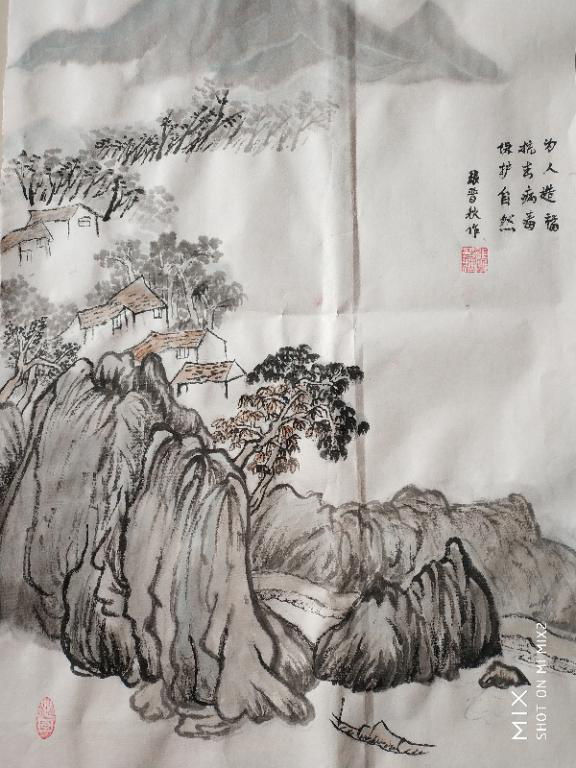 为人造福
抗击病毒
保护自然
晋秋作
MIX
SHOT ON MI MIX2